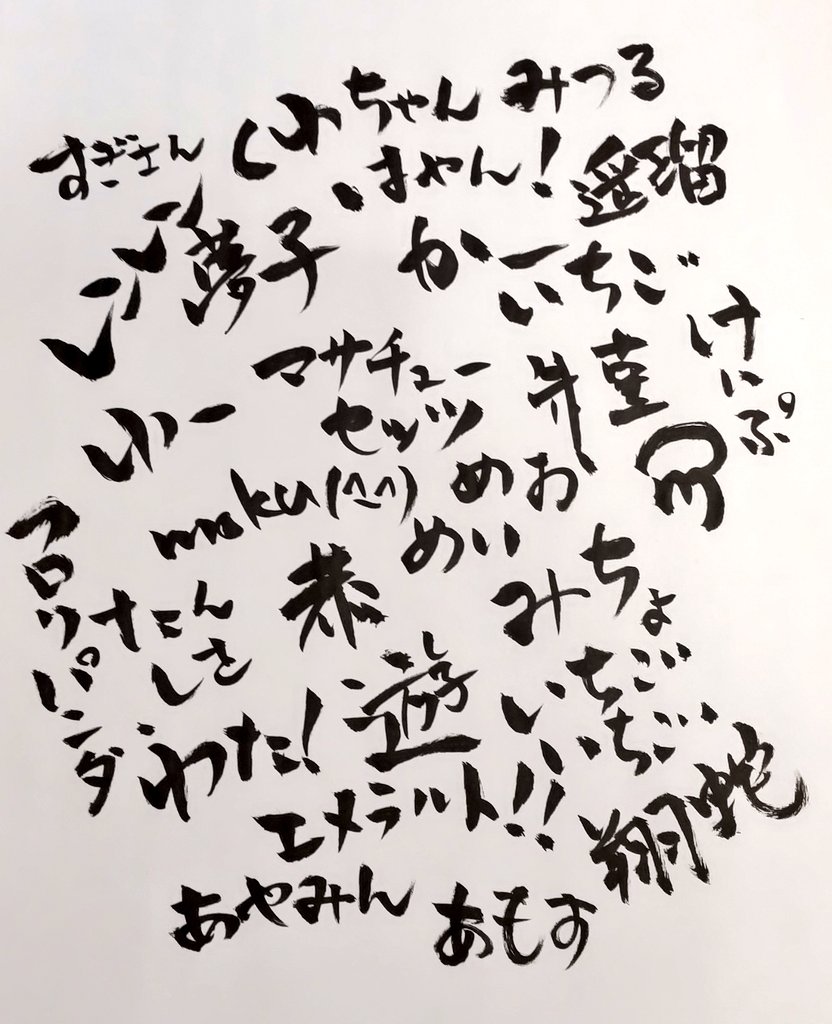 みつる
ちゃん
すぎさん
まやん!
遥瑠
夢子
か
いちご
けいぷ
マサチュー
セッツ
ふー
moku(^_^)
めお
めい
恭
みちょ
フロリパンダ
わた!
遊
いちご
いちご
エメラルド!!
翔蛇
あやみん
あもす